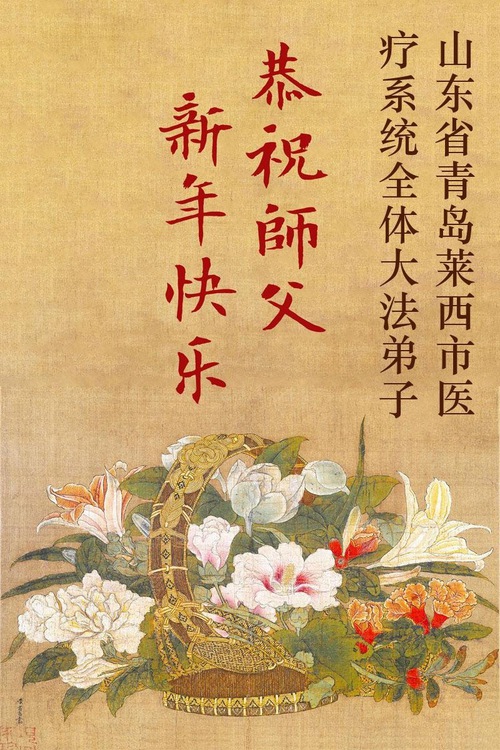 山东省青岛莱西市医
疗系统全体大法弟子
恭祝師父
新年快乐